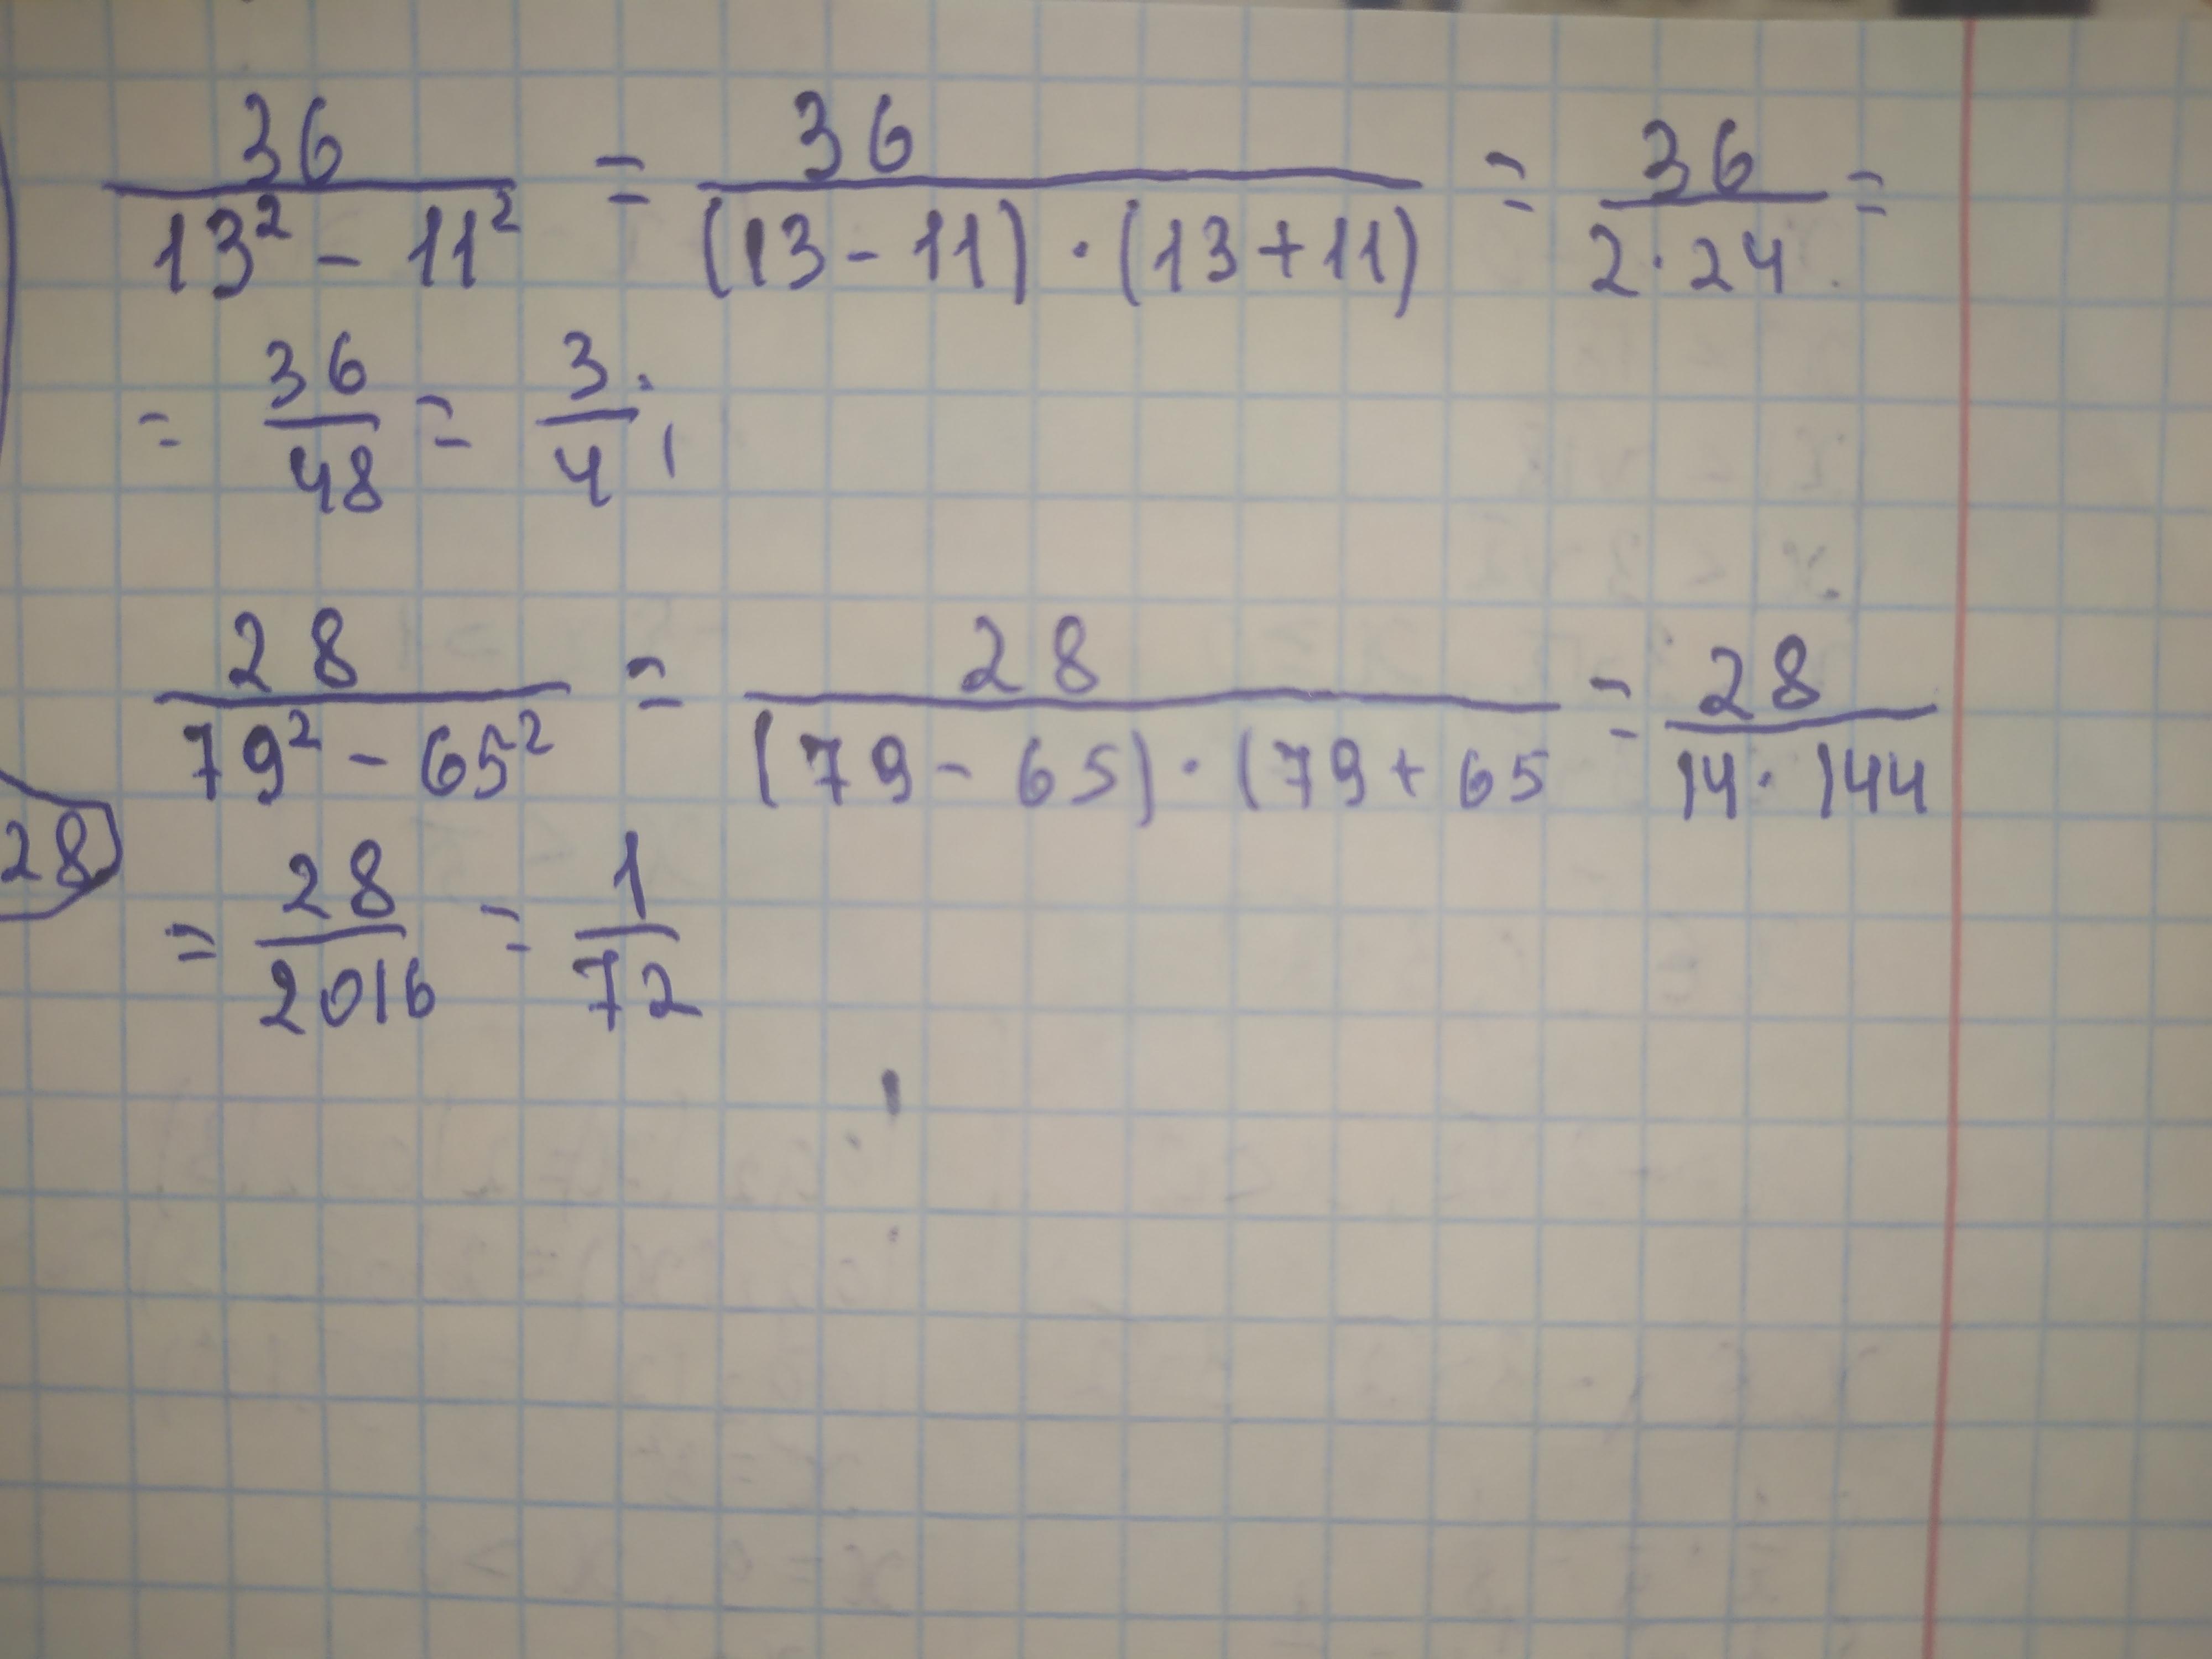 36/(13² - 11²) = 36/((13 - 11) · (13 + 11)) = 36/(2 · 24) =
= 36/48 = 3/4;
28/(79² - 65²) = 28/((79 - 65) · (79 + 65) = 28/(14 · 144)
28
= 28/2016 = 1/72